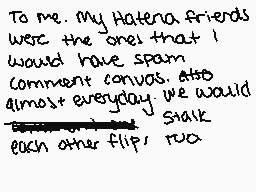 To me. My Hatena friends
were the ones that I
would have spam
comment convos. also
almost everyday. we would
stalk
each other flips